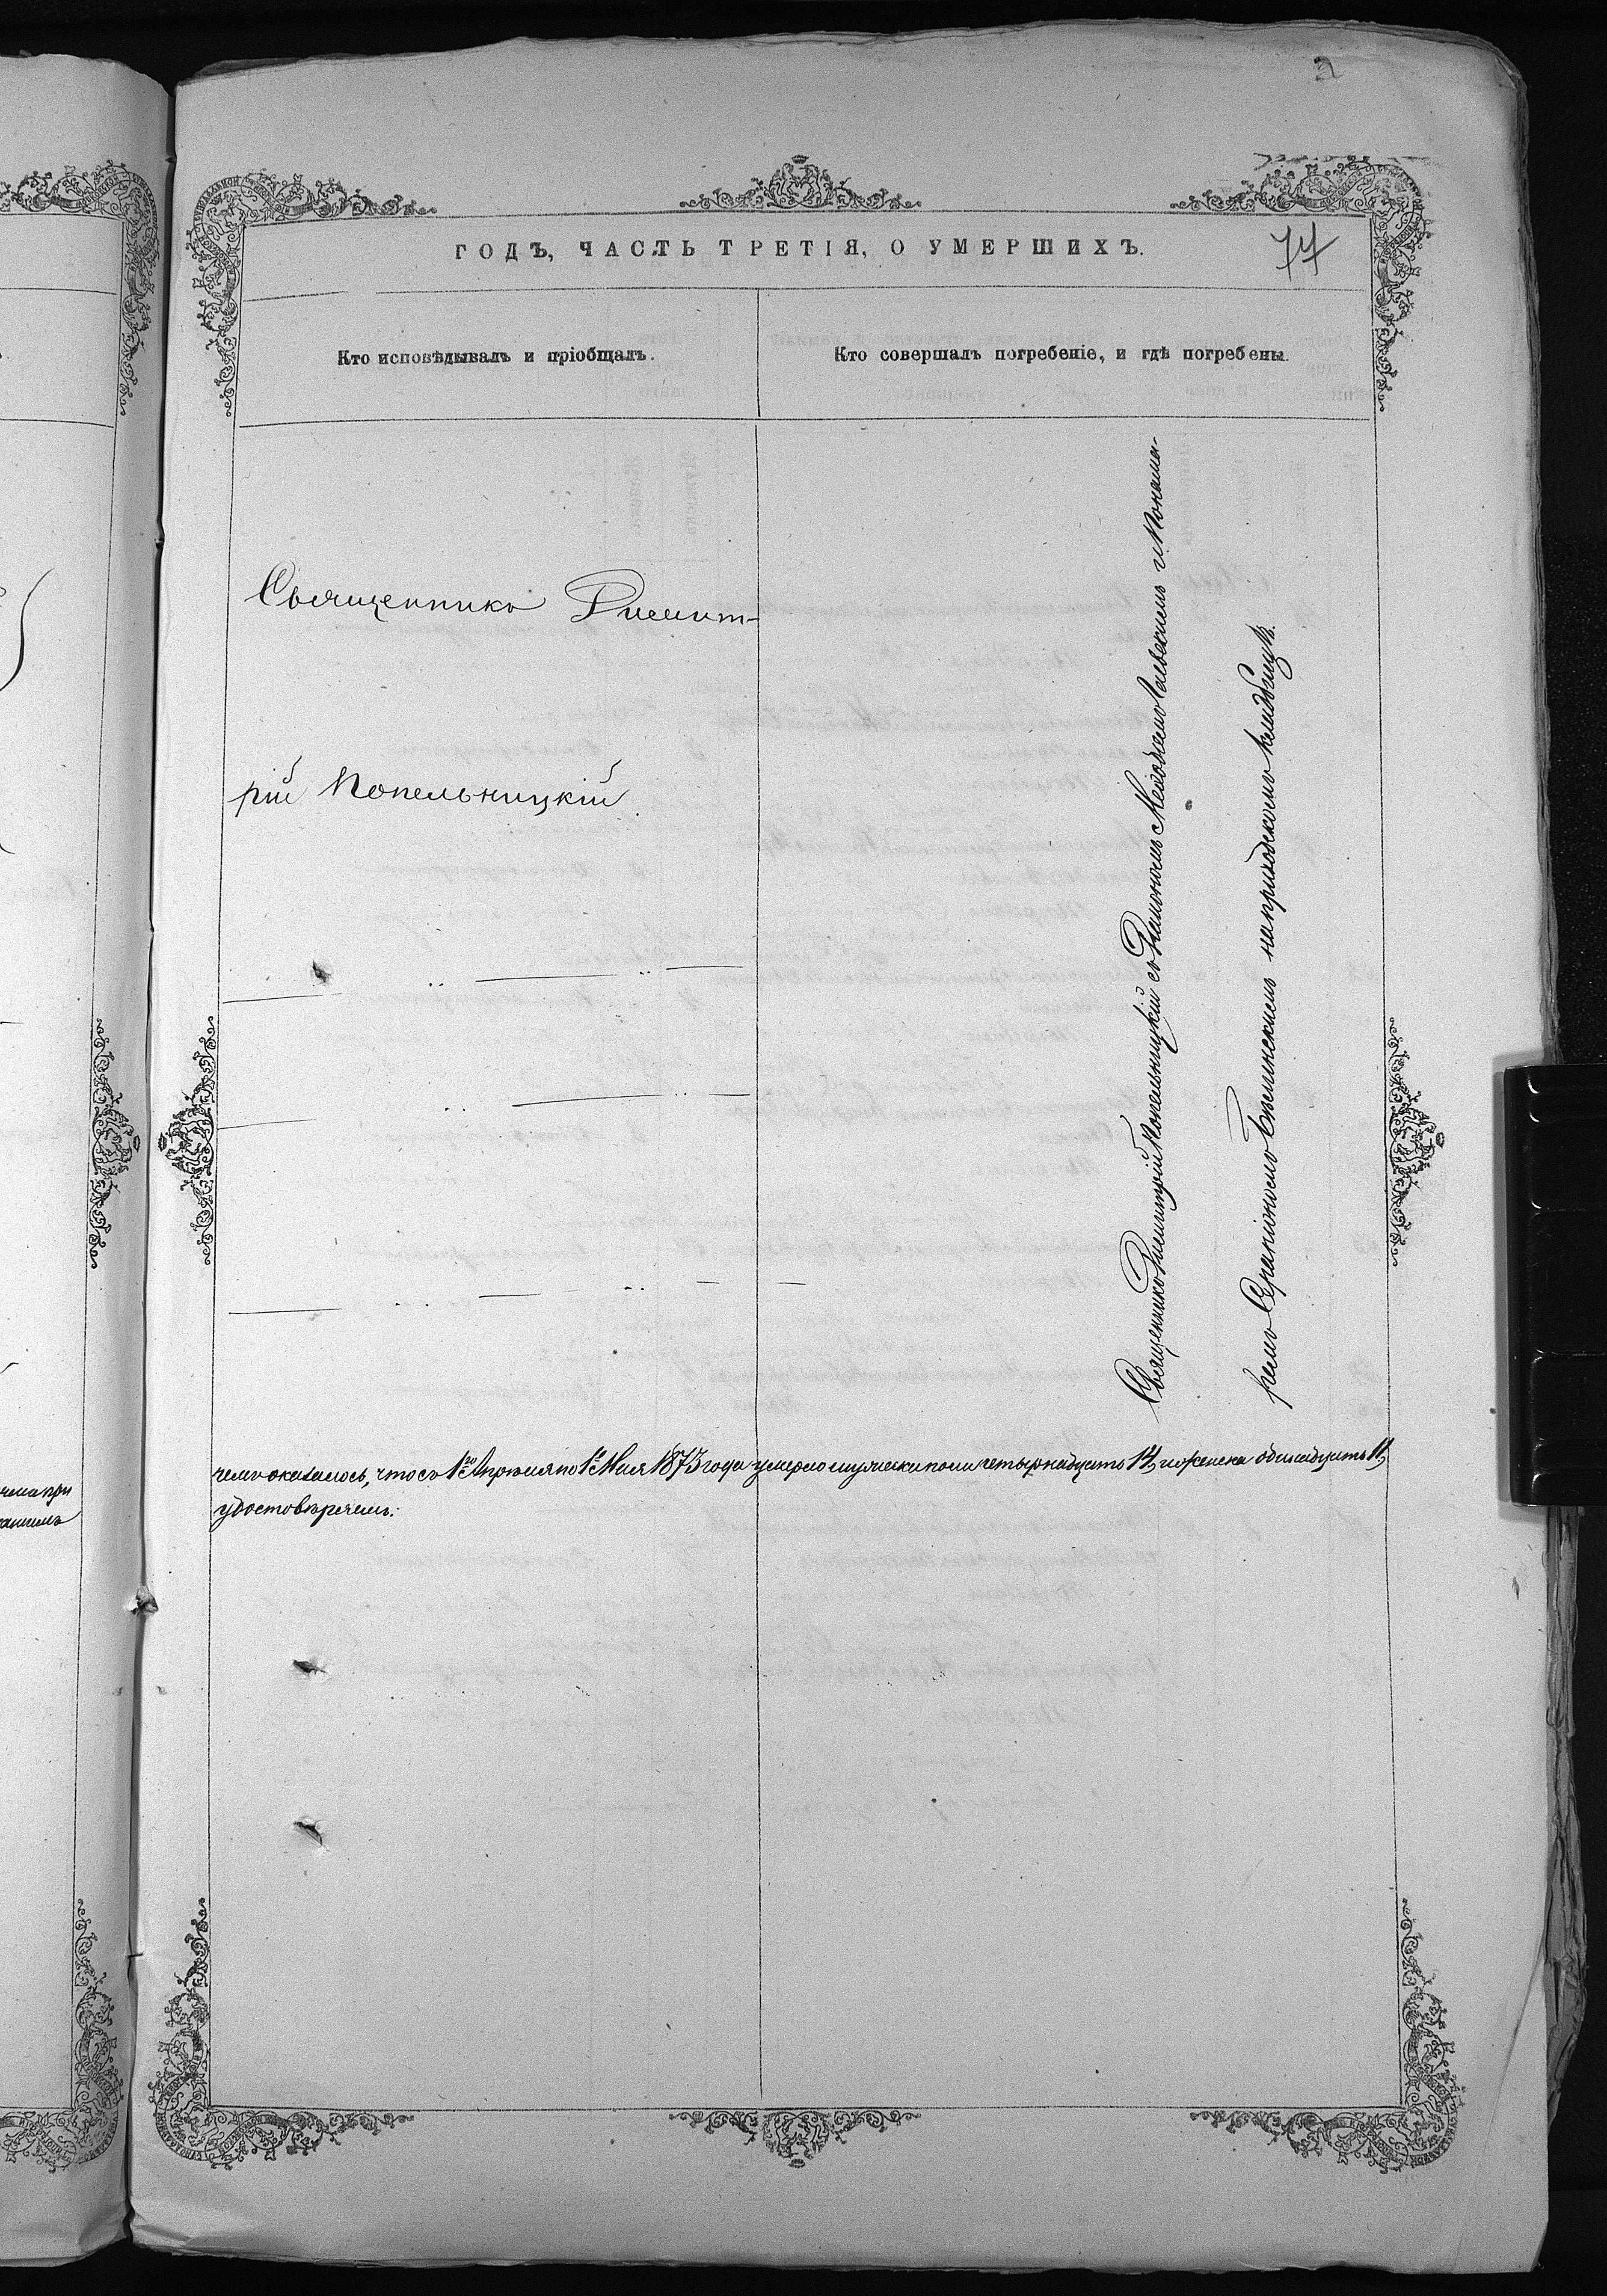 77
ГОДЪ, ЧАСТЬ ТРЕТІЯ, О УМЕРШИХЪ.
Кто исповѣдывалъ и пріобщалъ.
Кто совершалъ погребеніе, и гдѣ погребены.
Священникъ Димит-
рій Копельницкій.
Священникъ Димитрій Копельницкій съ Диакономъ Раевскимъ и Понома-
ремъ Серапіономъ на приходскомъ кладбищѣ.
чемъ оказалось, что съ 1го Апрѣля по 1е Мая 1873 года умерло мужеска пола четырнадцать 14, и женска одинадцать 11,
удостовѣряемъ: